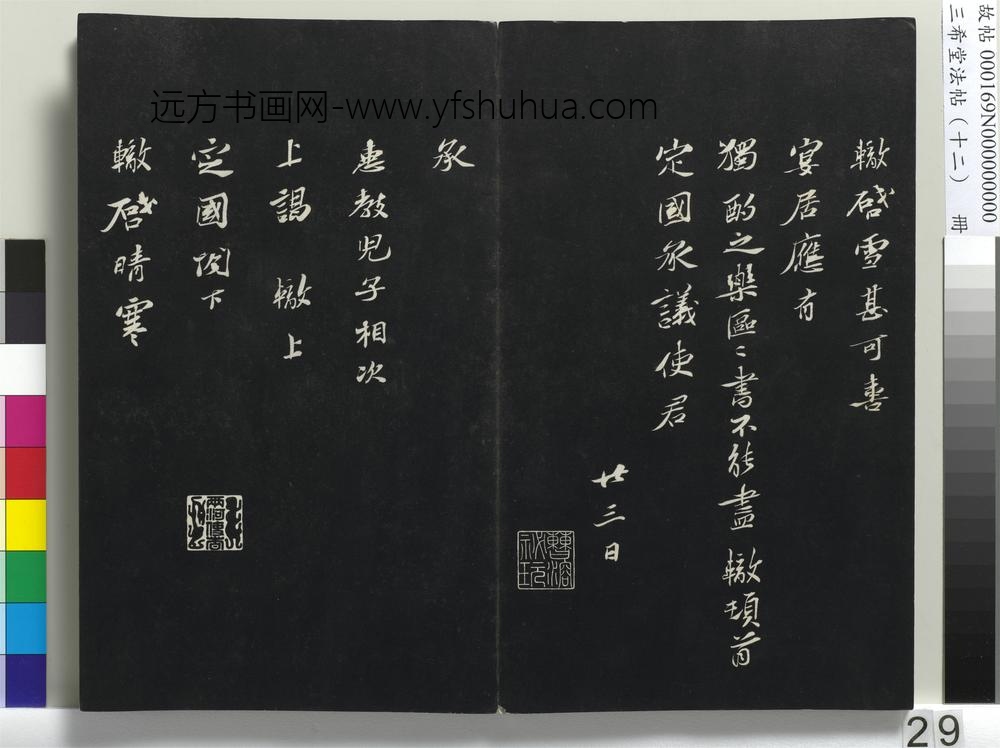 轍啓雪甚可喜
宴居應有
獨酌之樂區〻書不能盡 轍頓首
定國承議使君
廿三日
承
惠教兒子相次
上謁 轍上
定國閣下
轍啓晴寒
远方书画网-www.yfshuhua.com
故帖 000169N000000000
三希堂法帖(十二) 冊
29